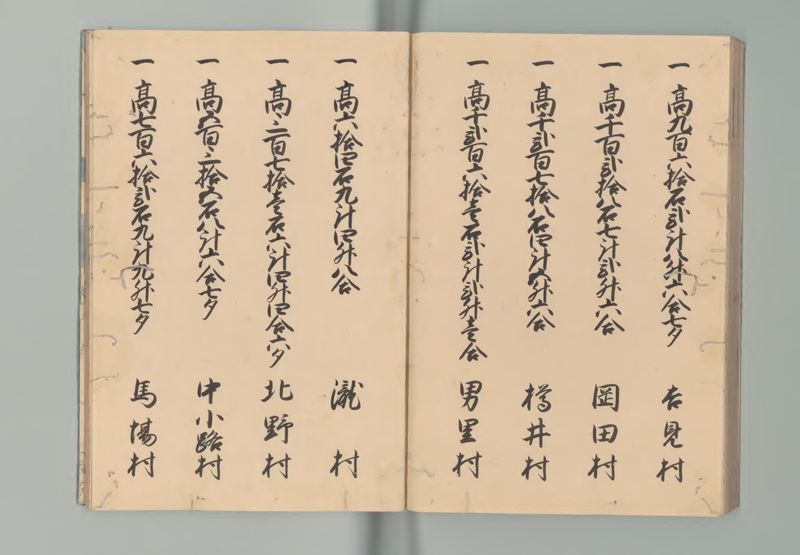 一 高九百六拾石弐斗八升六合七夕 吉見村
一 高千百弐拾八石七斗弐升六合 岡田村
一 高千弐百七拾八石四斗五升六合 樽井村
一 高千弐百六拾壱石弐斗弐升壱合 男里村
一 高六拾四石九斗四升八合 瀧村
一 高三百七拾壱石六斗四升四合六夕 北野村
一 高五百三拾五石八斗六合七夕 中小路村
一 高七百六拾弐石九斗九升七夕 馬場村